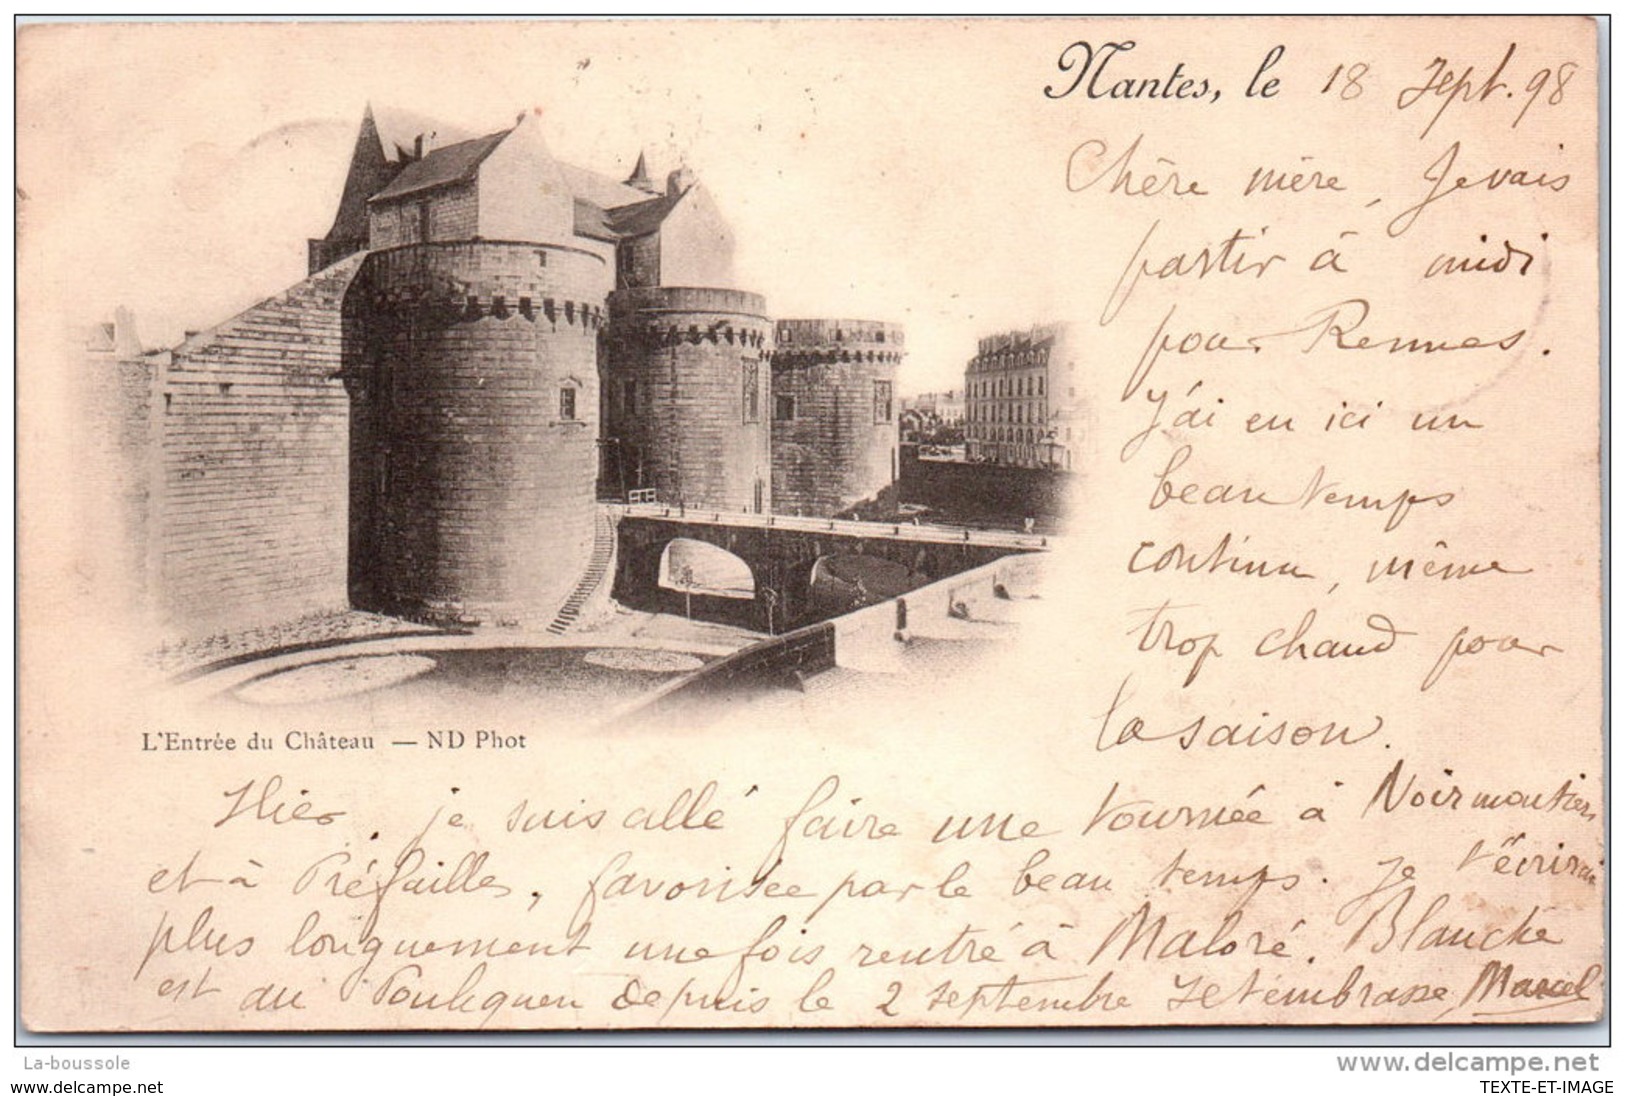 Nantes, le 18 Sept. 98
Chère mère, Je vais
partir à midi
pour Rennes.
J'ai eu ici un
beau temps
continu, même
trop chaud pour
la saison.
L'Entrée du Château — ND Phot
Hier, je suis allé faire une tournée à Noirmoutier
et à Préfailles, favorisée par le beau temps. Je t'écrirai
plus longuement une fois rentré à Maloré. Blanche
est au Pouliguen depuis le 2 septembre Je t'embrasse, Marcel
La-boussole
www.delcampe.net
www.delcampe.net
TEXTE-ET-IMAGE